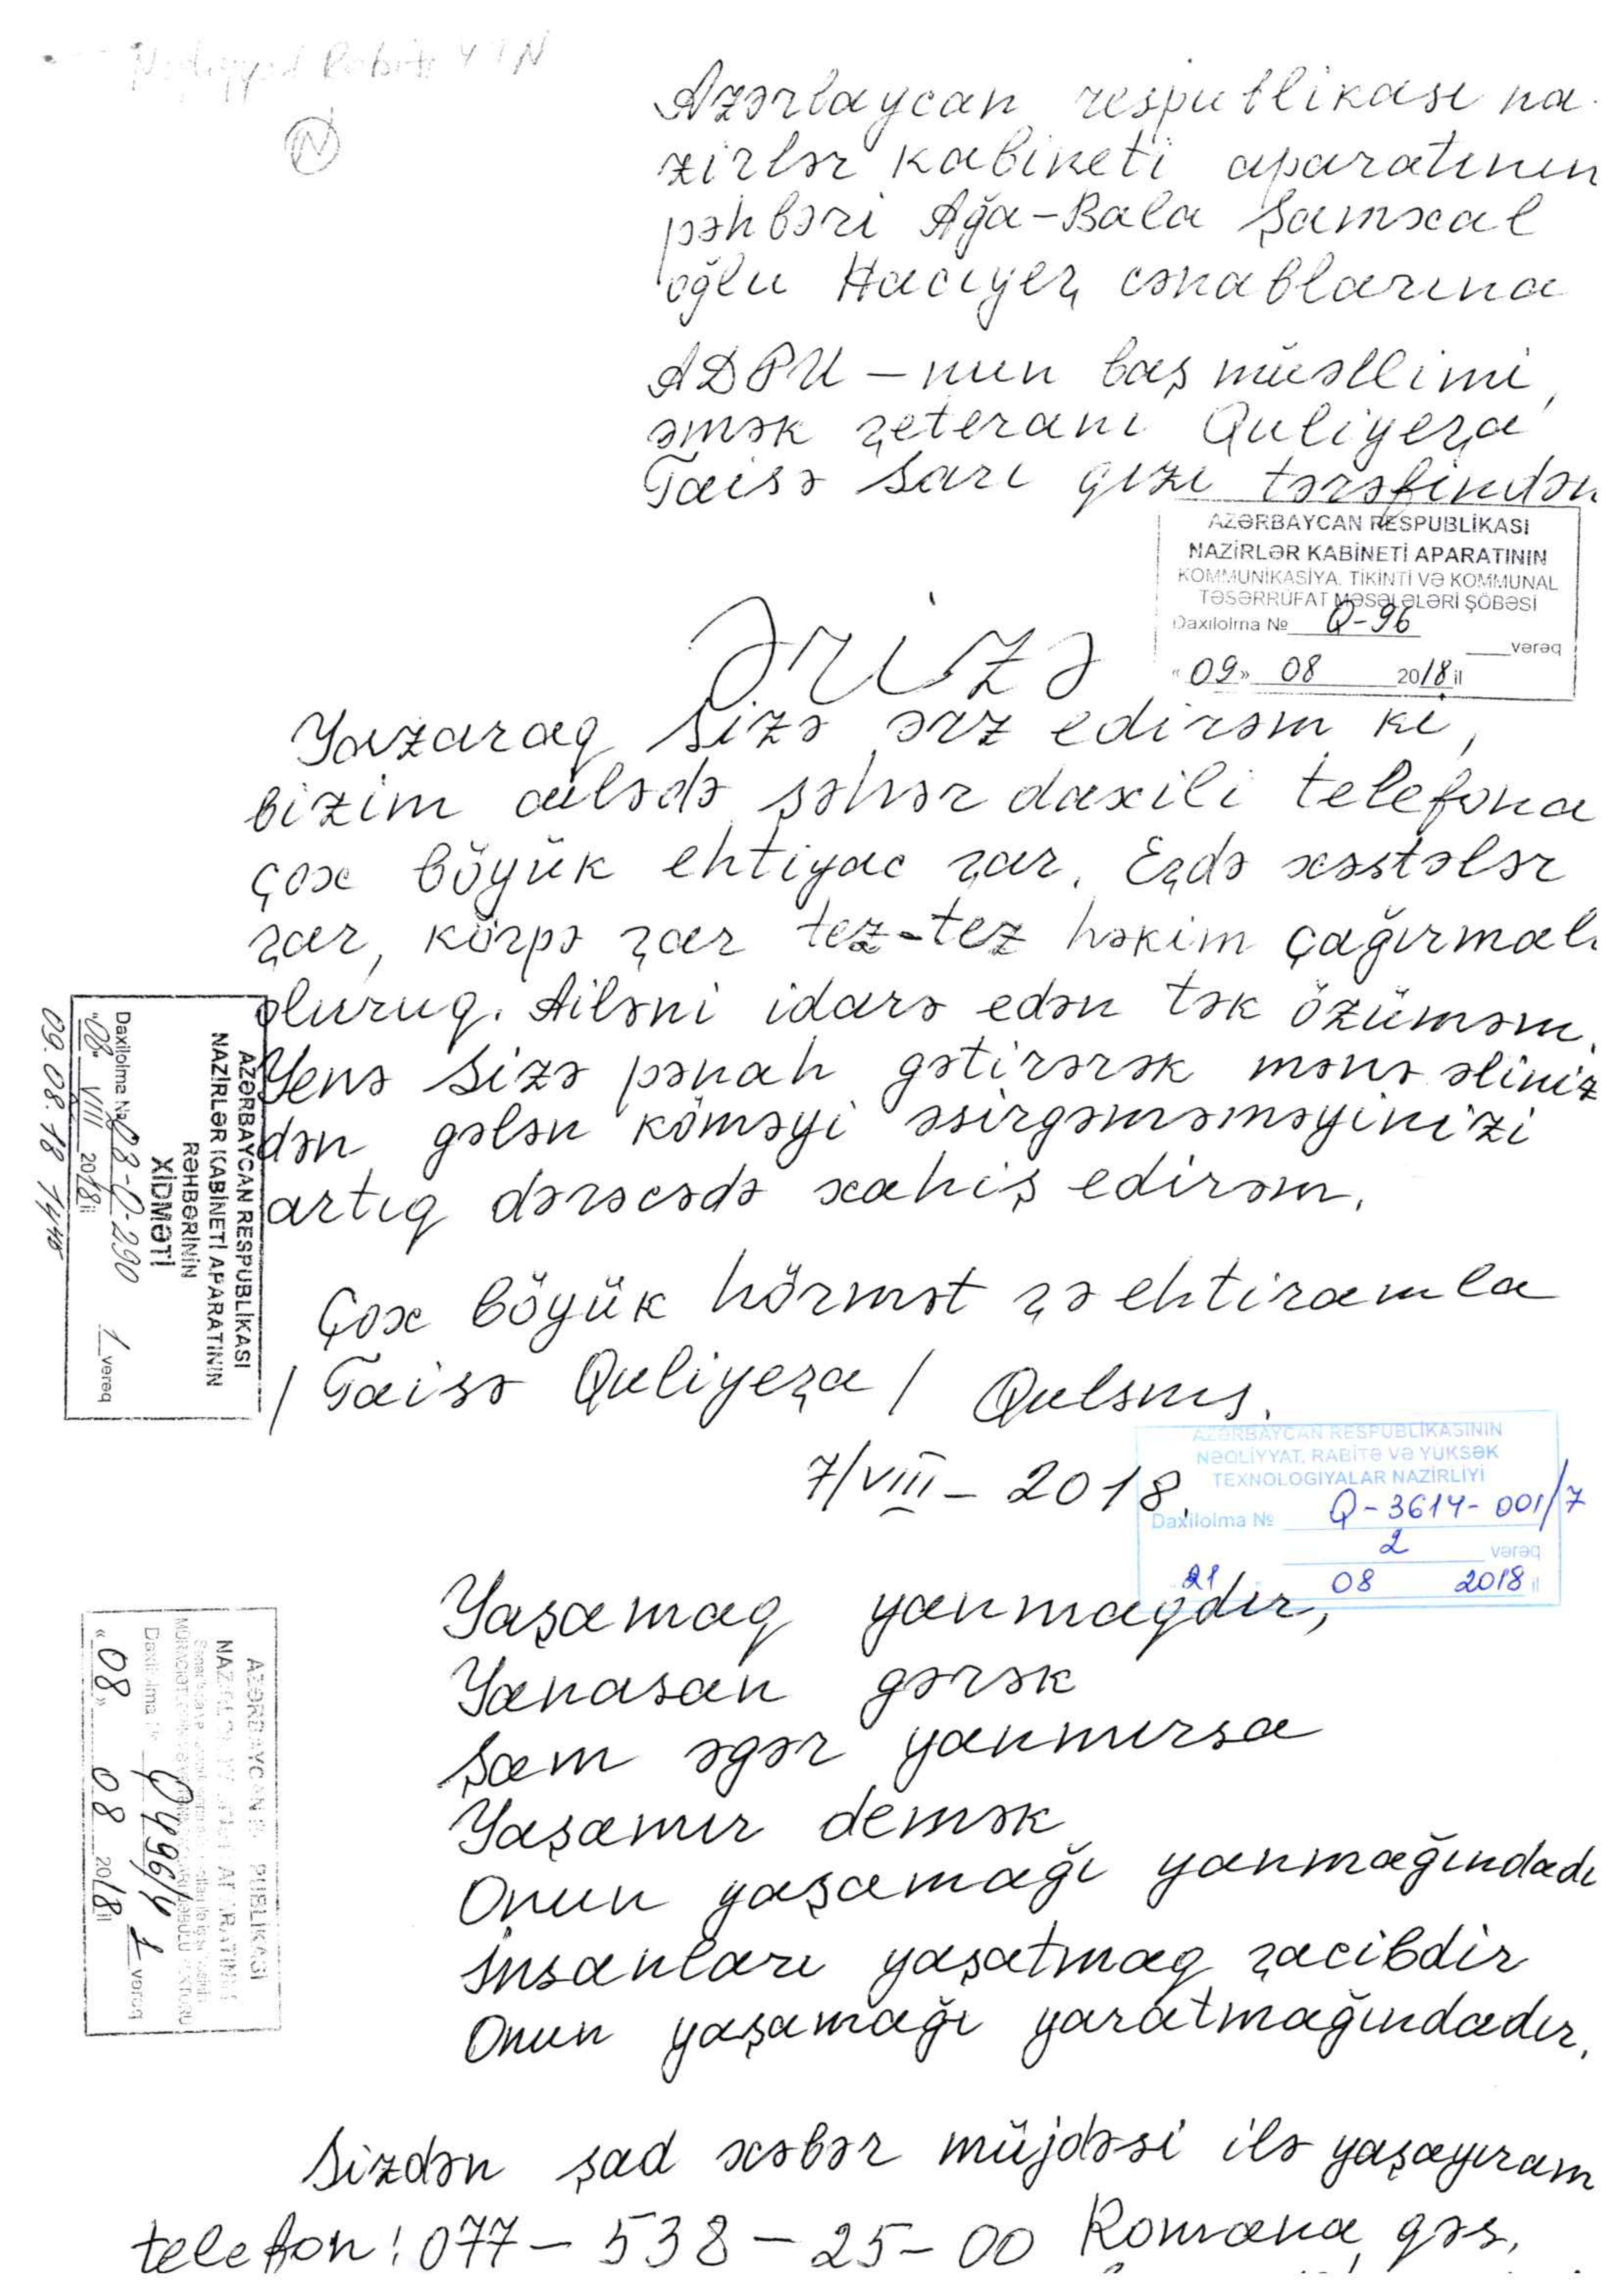 Azərbaycan respublikası na
zirlər kabineti aparatının
rəhbəri Ağa-Bala Şamxal
oğlu Hacıyev cənablarına
ADPU-nun baş müəllimi,
əmək veteranı Quliyeva
Taisə Sarı qızı tərəfindən
AZƏRBAYCAN RESPUBLİKASI
NAZİRLƏR KABİNETİ APARATININ
KOMMUNİKASİYA, TİKİNTİ VƏ KOMMUNAL
TƏSƏRRÜFAT MƏSƏLƏLƏRİ ŞÖBƏSİ
Daxilolma № Q-96
vərəq
«09» 08 2018 il
Ərizə
Yazaraq Sizə ərz edirəm ki,
bizim ailədə şəhər daxili telefona
çox böyük ehtiyac var. Evdə xəstələr
var, körpə var tez-tez həkim çağırmalı
oluruq. Ailəni idarə edən tək özüməm.
Yenə Sizə pənah gətirərək mənə əliniz
dən gələn köməyi əsirgəməməyinizi
artıq dərəcədə xahiş edirəm.
AZƏRBAYCAN RESPUBLİKASI
NAZİRLƏR KABİNETİ APARATININ
RƏHBƏRİNİN
XİDMƏTİ
Daxilolma № 08-Q-290 1 vərəq
"08" VIII 2018 il
09.08.18
Çox böyük hörmət və ehtiramla
/Taisə Quliyeva/
7/VIII-2018.
AZƏRBAYCAN RESPUBLİKASININ
NƏQLİYYAT, RABİTƏ VƏ YÜKSƏK
TEXNOLOGİYALAR NAZİRLİYİ
Daxilolma № Q-3614-001/7
2 vərəq
21 08 2018 il
Yaşamaq yanmaqdır,
Yanasan gərək
Şam əgər yanmırsa
Yaşamır demək
Onun yaşamağı yanmağındadı
İnsanları yaşatmaq vacibdir
Onun yaşamağı yaratmağındadır.
«08» 08 2018 il
Sizdən şad xəbər müjdəsi ilə yaşayıram
telefon: 077-538-25-00 Romana qəs.